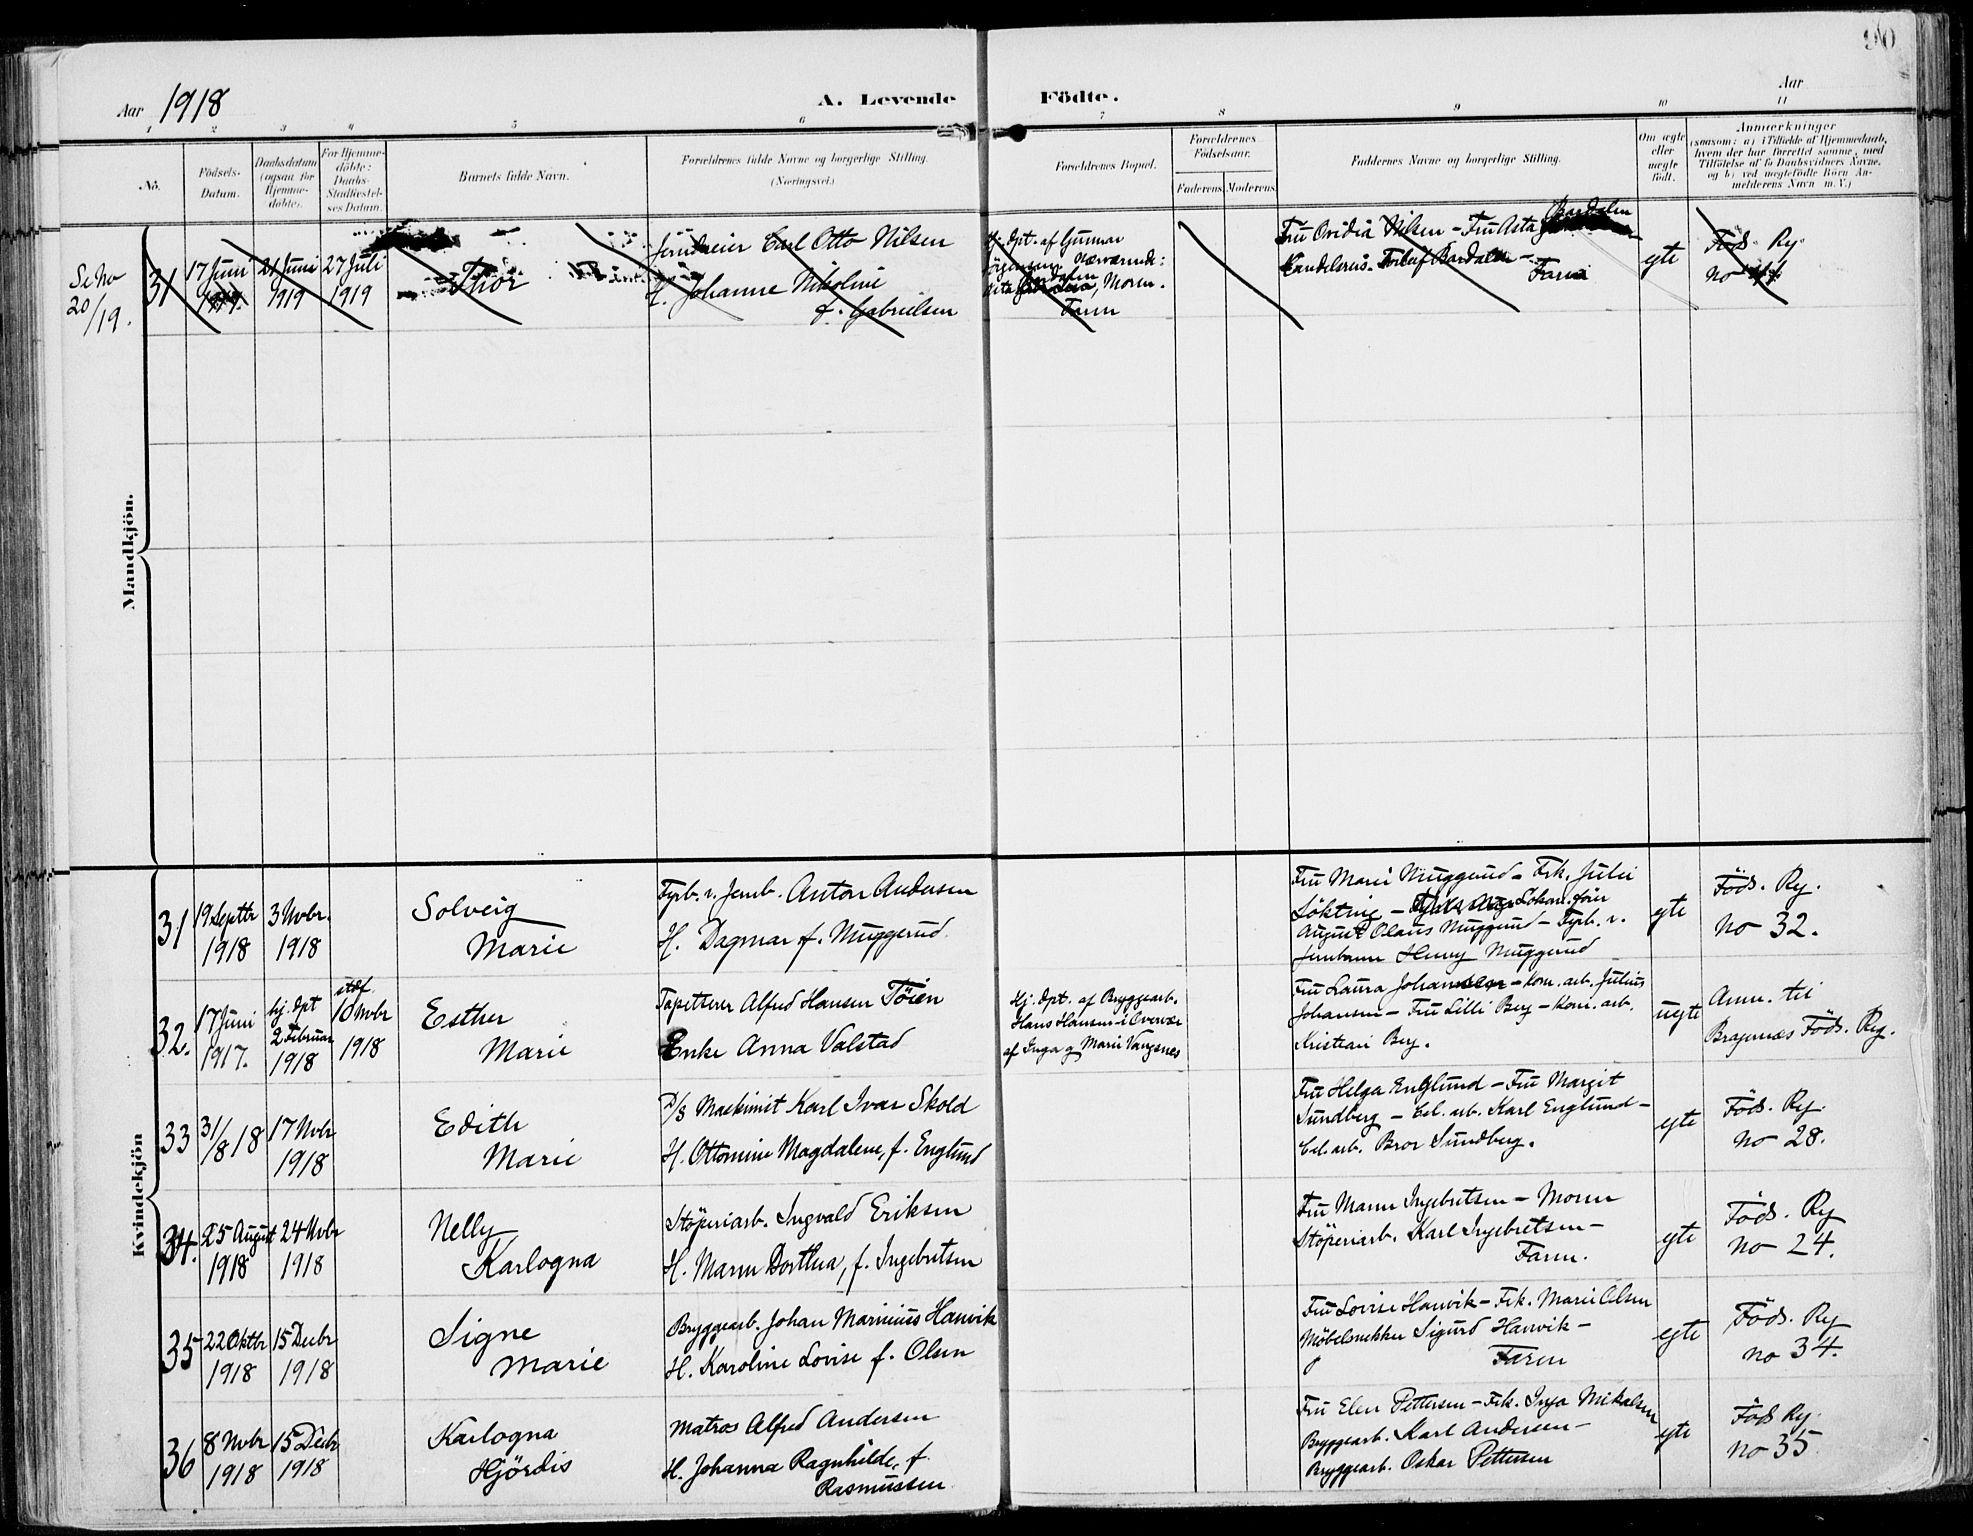 90
Aar 1918
A. Levende Födte.
Aar
1 2 3 4 5 6 7 8 9 10 11
No.
Födsels-Datum.
Daabsdatum (ogsaa for Hjemme-döbte).
For Hjemme-döbte: Daabs-Stadfæstel-ses Datum.
Barnets fulde Navn.
Forældrenes fulde Navne og borgerlige Stilling.
(Næringsvei.)
Forældrenes Bopæl.
Forældrenes Födselsaar.
Faderens. Moderens.
Faddernes Navne og borgerlige Stilling.
Om ægte eller uegte födt.
Anmærkninger
(saasom: a) i Tilfælde af Hjemmedaab,
hvem der har forrettet samme, med
Tilföielse af to Daabsvidners Navne,
og b) ved uegtefödte Börn An-
melderens Navn m. V.)
Mandkjön.
Se No
20/19.
31
17 Juni
21 Juni
1919
27 Juli
1919
Thor
Carl Otto Nilsen
H. Johanne Nikoline
f. Gabrielsen
Hj. dpt. af Gunnar
Moren.
Faren
Fru Ovidia Nilsen - Fru Asta Bardalen
Bardalen -
Faren
egte
Föds. Rg.
No
Kvindekjön
31
19 Septbr
1918
3 Nvbr.
1918
Solveig
Marie
Fyrb. v. Jernb. Anton Andersen
H. Dagmar f. Muggerud
Fru Marie Muggerud - Frk. Julie
Lökting -
August Olaus Muggerud - Fyrb. v.
Jernbanen Henry Muggerud
egte
Föds. Rg.
No 32.
32.
17 Juni
1917.
hj. dpt
2 Februar
1918
stdf.
10 Nvbr
1918
Esther
Marie
Tapetserer Alfred Hansen Töien
Enke Anna Valstad
Hj. dpt. af Bryggearb.
Hans Hansen i Overvær
af Inga og Marie Vangsnes
Fru Laura Johansen - Kom. arb. Julius
Johansen - Fru Lilli Berg - Kom. arb.
Kristian Berg.
uegte
Anm. til
Bragernæs Föds. Rg.
33
31/8 18
17 Nvbr
1918
Edith
Marie
D/S Maskinist Karl Ivar Skold
H. Ottomine Magdalene, f. Englund
Fru Helga Englund - Fru Margit
Sundberg - Cel. arb. Karl Englund -
Cel. arb. Bror Sundberg.
egte
Föds. Rg.
No 28.
34.
25 August
1918
24 Nvbr
1918
Nelly
Karlogna
Stöperiarb. Ingvald Eriksen
H. Maren Dorthea, f. Ingebretsen
Fru Maren Ingebretsen - Moren
Stöperiarb. Karl Ingebretsen -
Faren.
egte
Föds. Rg
No 24.
35
22 Oktbr
1918
15 Decbr
1918
Signe
Marie
Bryggearb. Johan Marinius Hanvik
H. Karoline Lovise f. Olsen
Fru Lovise Hanvik - Frk. Marie Olsen
Möbelsnekker Sigurd Hanvik -
Faren
egte
Föds. Rg
no 34.
36
8 Nvbr
1918
15 Decbr
1918
Karlogna
Hjördis
Matros Alfred Andersen
H. Johanna Ragnhilde, f.
Rasmussen
Fru Elen Pettersen - Frk. Inga Mikalsen
Bryggearb. Karl Andersen -
Bryggearb. Oskar Pettersen
egte
Föds Rg.
No 35